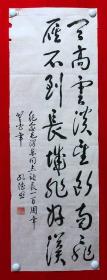 天高雲淡望断南飛
雁不到長城非好漢
纪念毛泽东同志诞辰一百周年